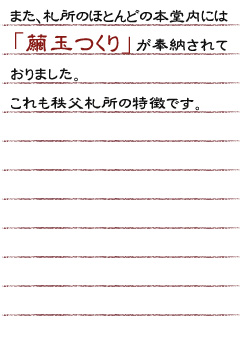 また、札所のほとんどの本堂内には
「繭玉つくり」が奉納されて
おりました。
これも秩父札所の特徴です。